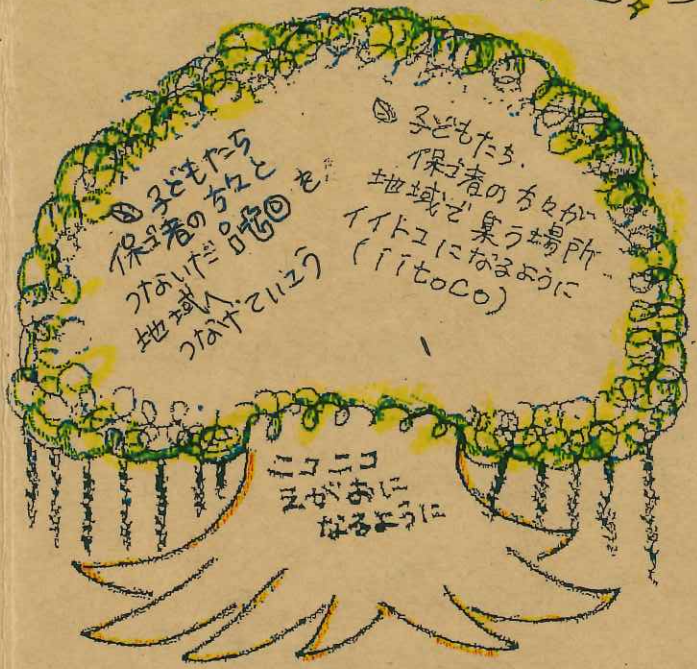 子どもたち
保ゴ者の方々と
つないだ ito を
地域へ
つなげていこう
子どもたち.
保ゴ者の方々が
地域で集う場所
イイトコになるように
(iitoco)
ニコニコ
えがおに
なるように